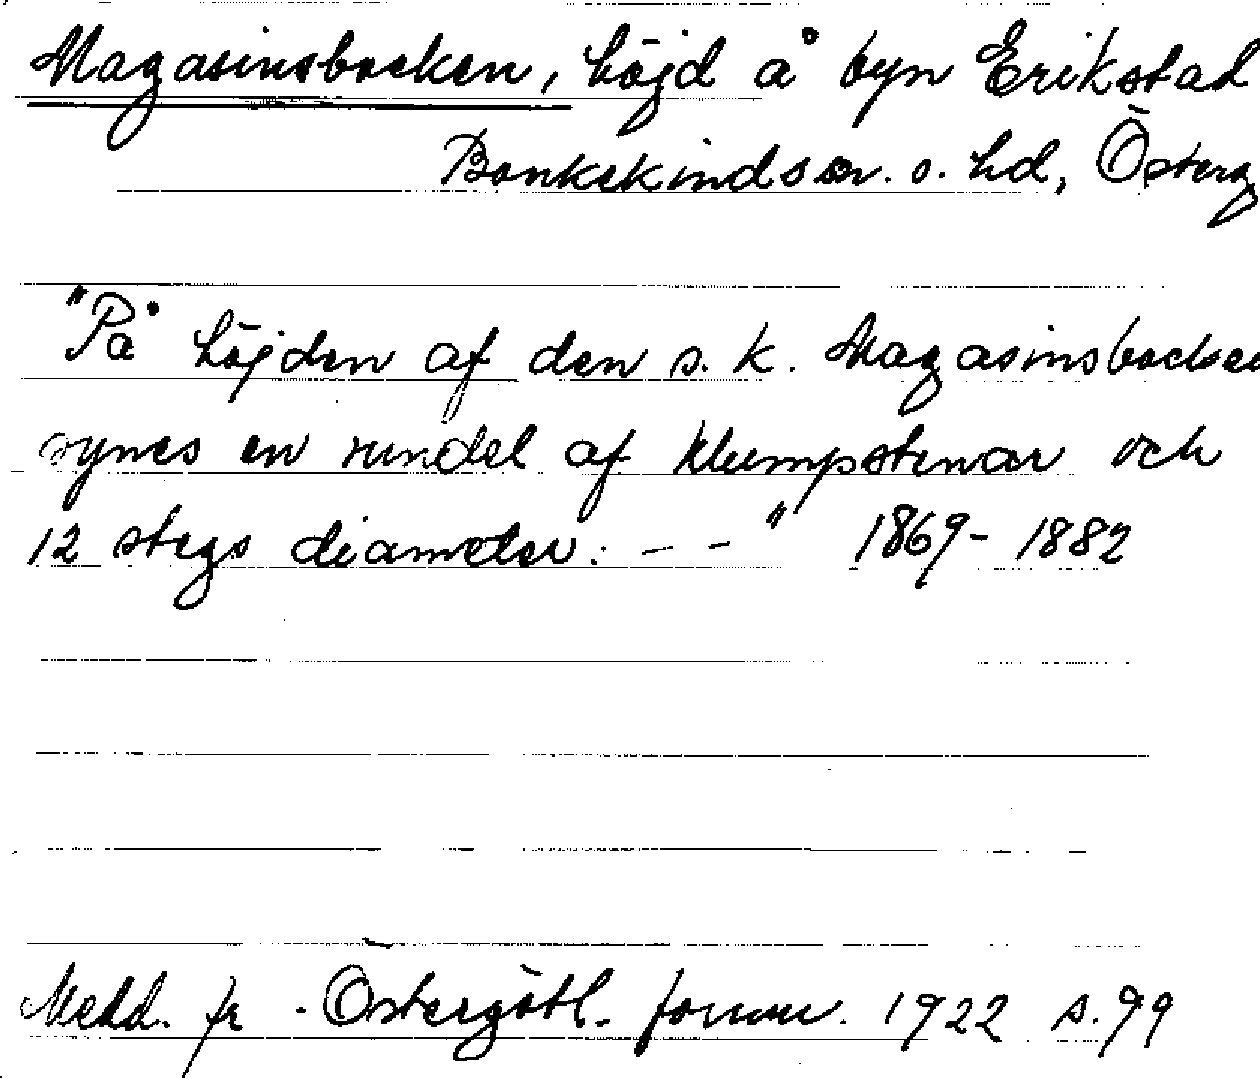 Magasinsbocken, höjd å byn Erikstad
Bankekinds sn. o. hd, Österg
"På höjden af den s. k. Magasinsbocken
synes en rundel af klumpstenar och
12 stegs diameter. — –" 1869-1882
Medd. fr. Östergötl. fornm. 1922 s. 99